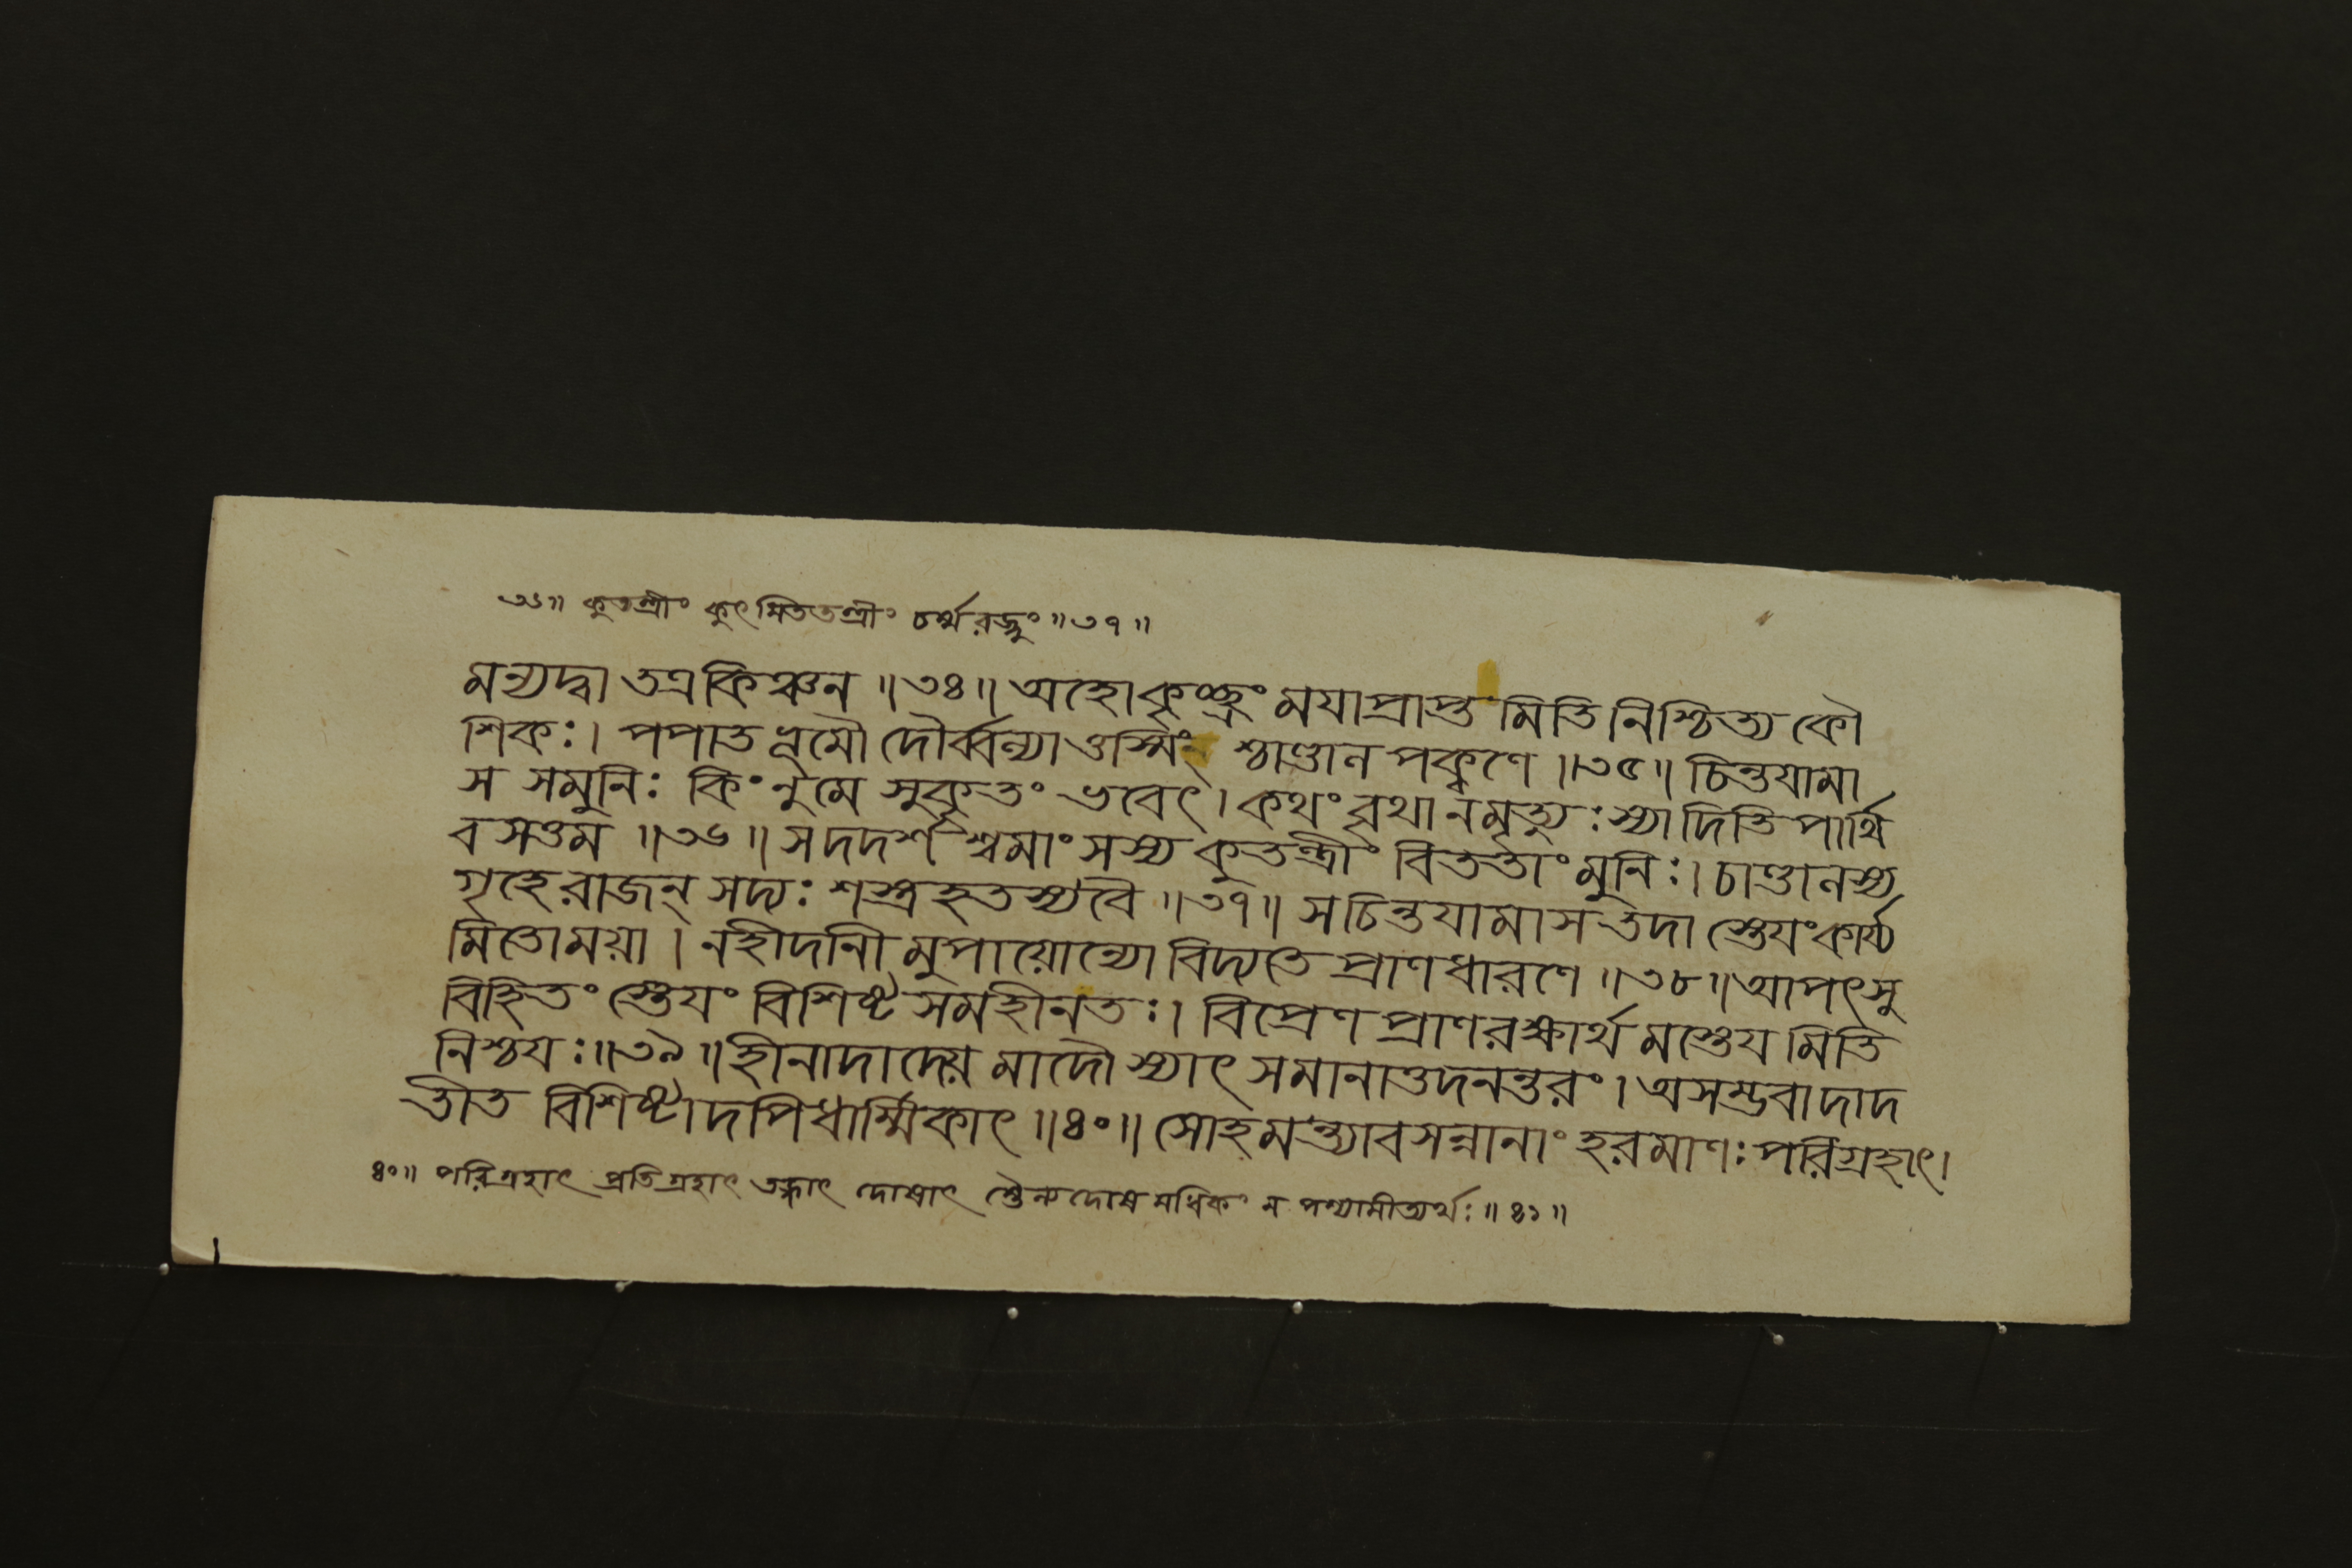 ৩৬॥ কুতন্ত্রীং কুৎসিততন্ত্রীং চর্ম্মরজ্জুং ॥৩৭॥
মন্যদ্বা তত্রকিঞ্চন ॥৩৪॥ অহোকৃচ্ছ্রং ময়াপ্রাপ্ত মিতি নিশ্চিত্য কৌ
শিকঃ। পপাত ভূমৌ দৌর্ব্বল্যাত্তস্মিং শ্চাণ্ডাল পক্কণে ॥৩৫॥ চিন্তযামা
স সমুনিঃ কিংনুমে সুকৃতং ভবেৎ। কথং বৃথা নমৃত্যুঃস্যাদিতি পার্থি
বসত্তম ॥৩৬॥ সদদর্শ শ্বমাংসস্য কুতন্ত্রীং বিততাং মুনিঃ। চাণ্ডালস্য
গৃহেরাজন্ সদ্যঃ শস্ত্রহতস্যবৈ ॥৩৭॥ সচিন্তযামাস তদা স্তেযংকার্য্য
মিতোময়া। নহীদানী মুপায়োন্যো বিদ্যতে প্রাণধারণে ॥৩৮॥ আপৎসু
বিহিতং স্তেযং বিশিষ্ট সমহীনতঃ। বিপ্রেণ প্রাণরক্ষার্থ মস্তেয মিতি
নিশ্চযঃ॥৩৯॥ হীনাদাদেয় মাদৌ স্যাৎ সমানাত্তদনন্তরং। অসম্ভবাদাদ
তীত বিশিষ্টাদপিধার্ম্মিকাৎ ॥৪০॥ সোহমন্ত্যাবসন্নানাং হরমাণঃ পরিগ্রহাৎ।
৪০॥ পরিগ্রহাৎ প্রতিগ্রহাৎ তস্মাৎ দোষাৎ স্তৈন্য দোষ মধিকং ন পশ্যামীত্যর্থঃ ॥৪১॥